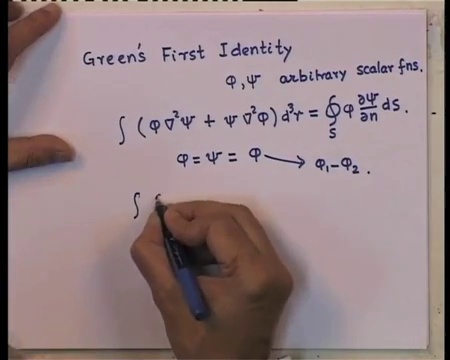 Green's First Identity
φ, ψ arbitrary scalar fns.
∫ (φ ∇²ψ + ψ ∇²φ) d³r = ∮_S φ ∂ψ/∂n dS.
φ = ψ = φ ⟶ φ₁ − φ₂ .
∫